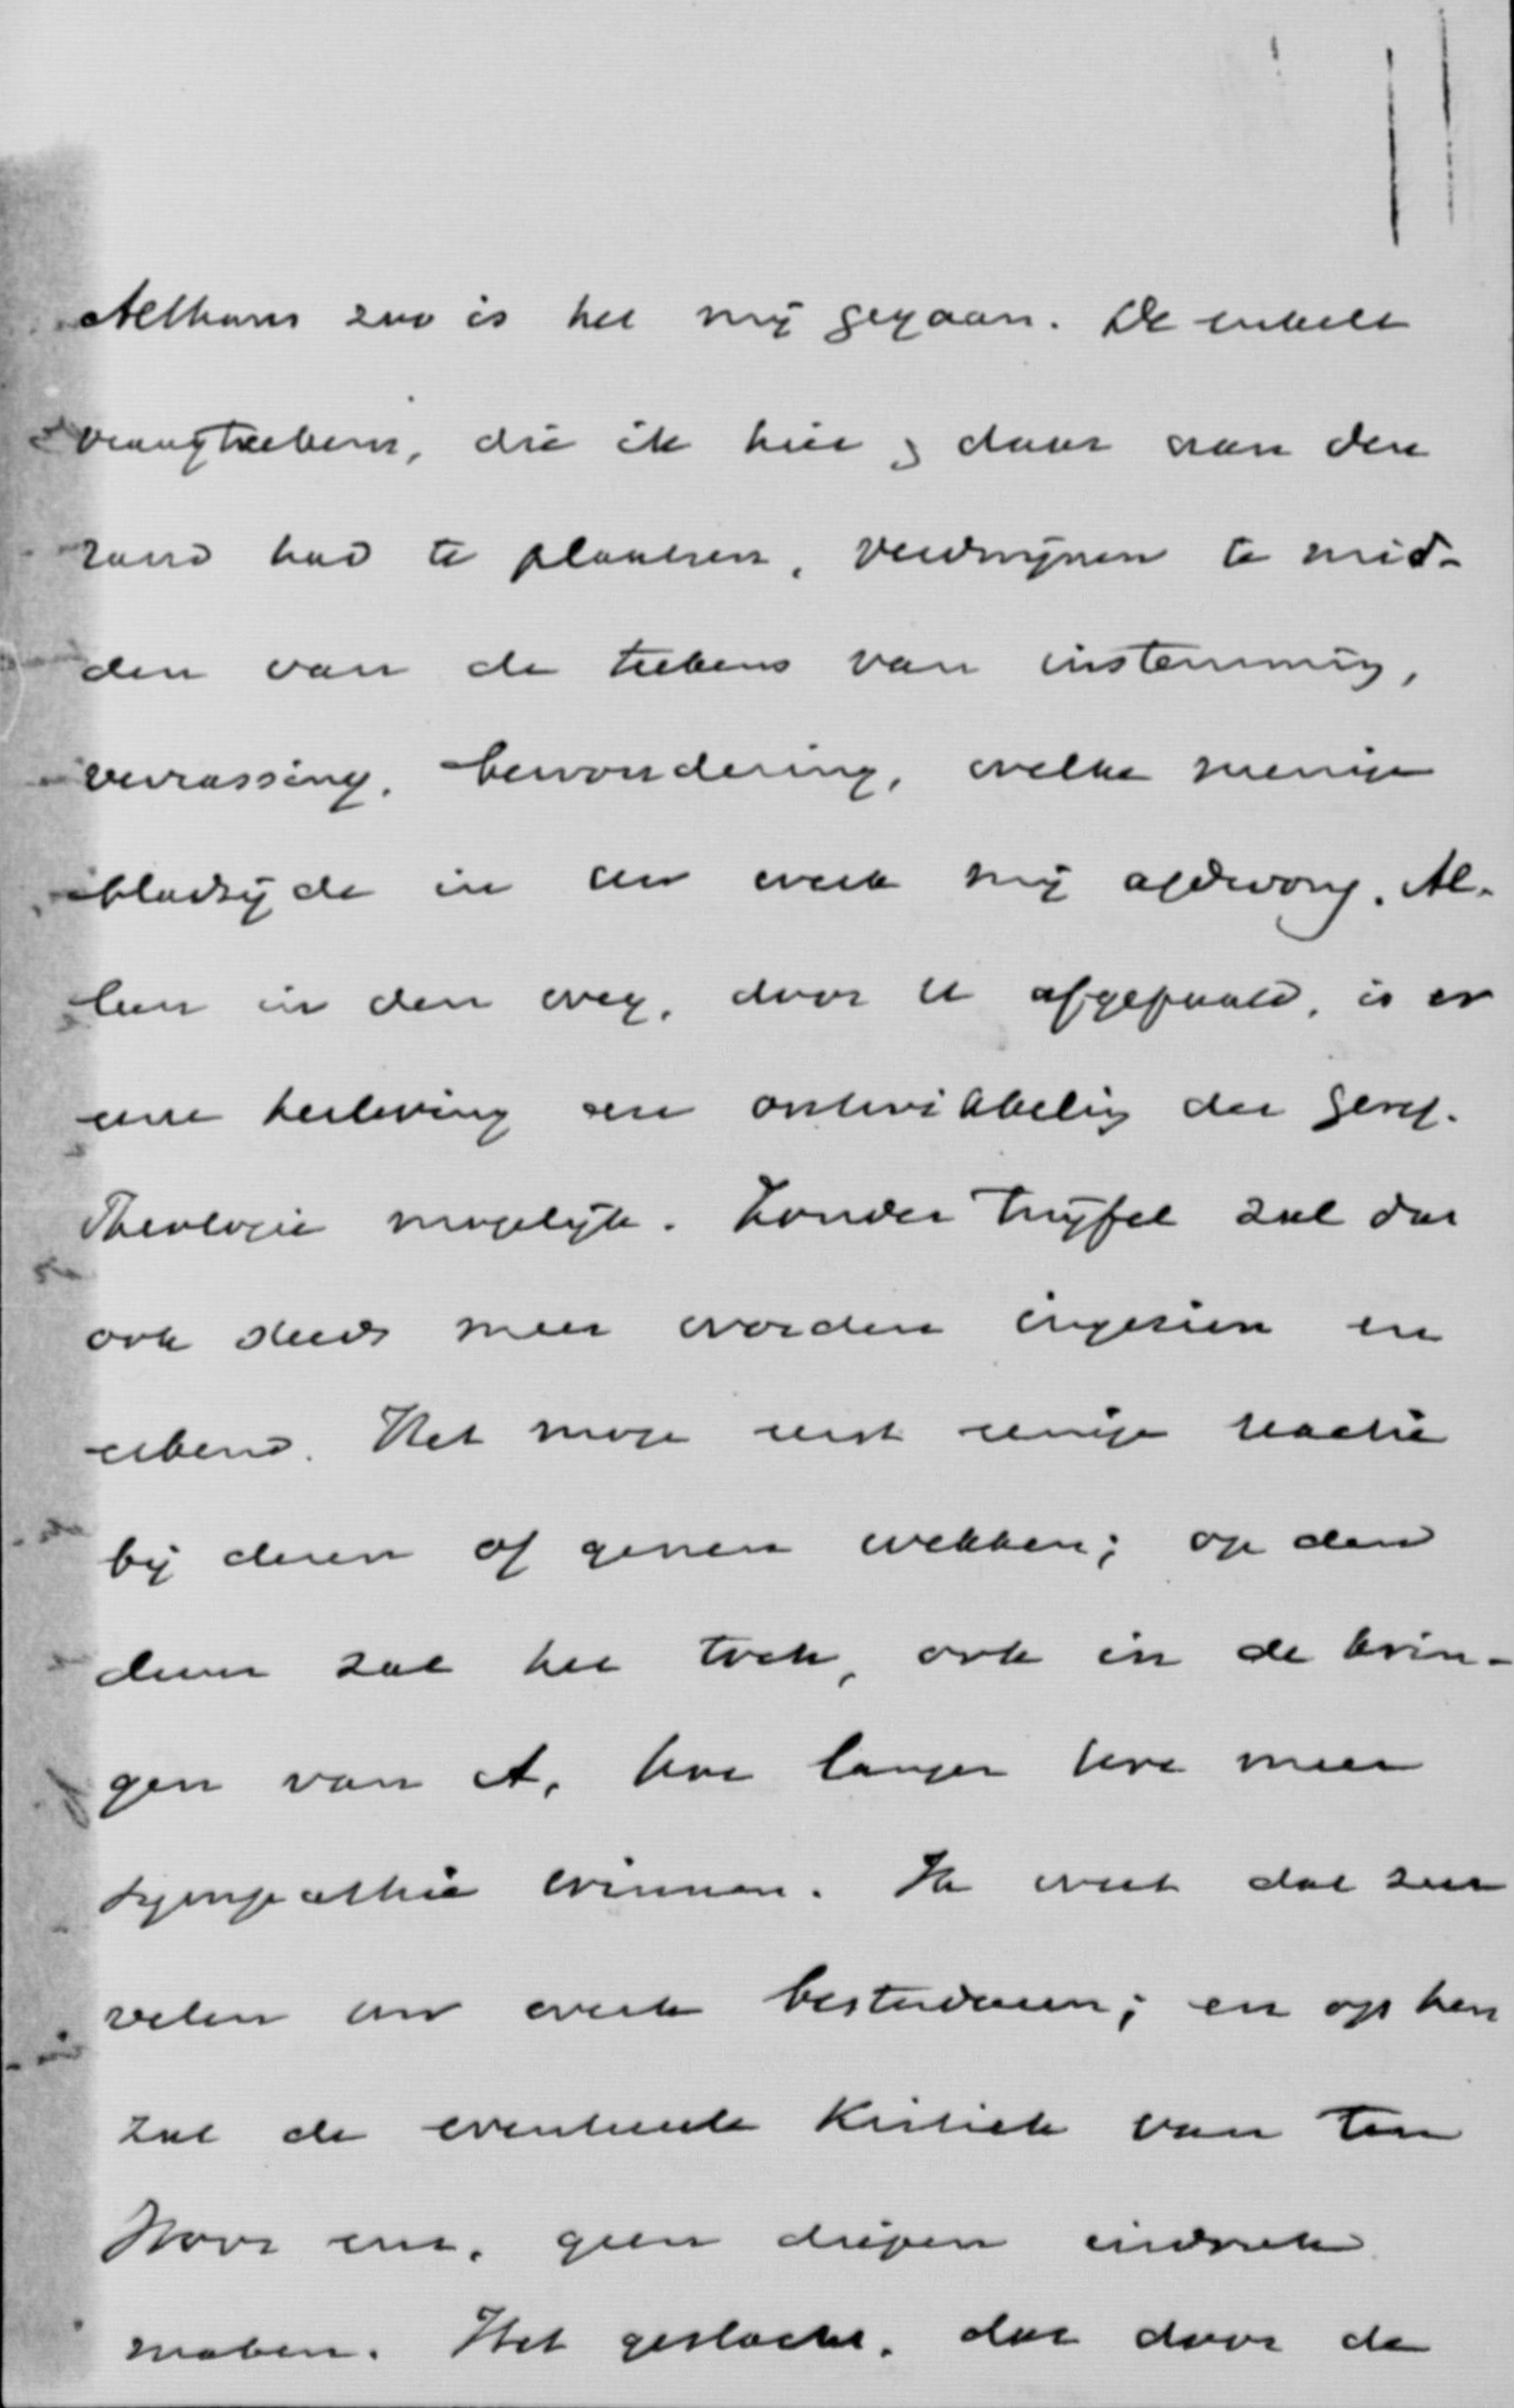 Althans zoo is het mij gegaan. De enkele
vraagteekens, die ik hier & daar aan den
rand had te plaatsen, verdwijnen te mid-
den van de teekens van instemming,
verrassing, bewondering, welke menige
bladzijde in uw werk mij afdwong. Al-
leen in den weg, door U afgepaald, is er
eene herleving en ontwikkeling der Geref.
Theologie mogelijk. Zonder twijfel zal dat
ook steeds meer worden ingezien en
erkend. Het moge eerst eenige reactie
bij dezen of genen wekken; op den
duur zal het toch, ook in de krin-
gen van A, hoe langer hoe meer
sympathie winnen. Ik weet dat zeer
velen uw werk bestudeeren; en op hen
zal de eventueele kritiek van ten
Hoor enz. geen diepen indruk
maken. Het geslacht, dat door de